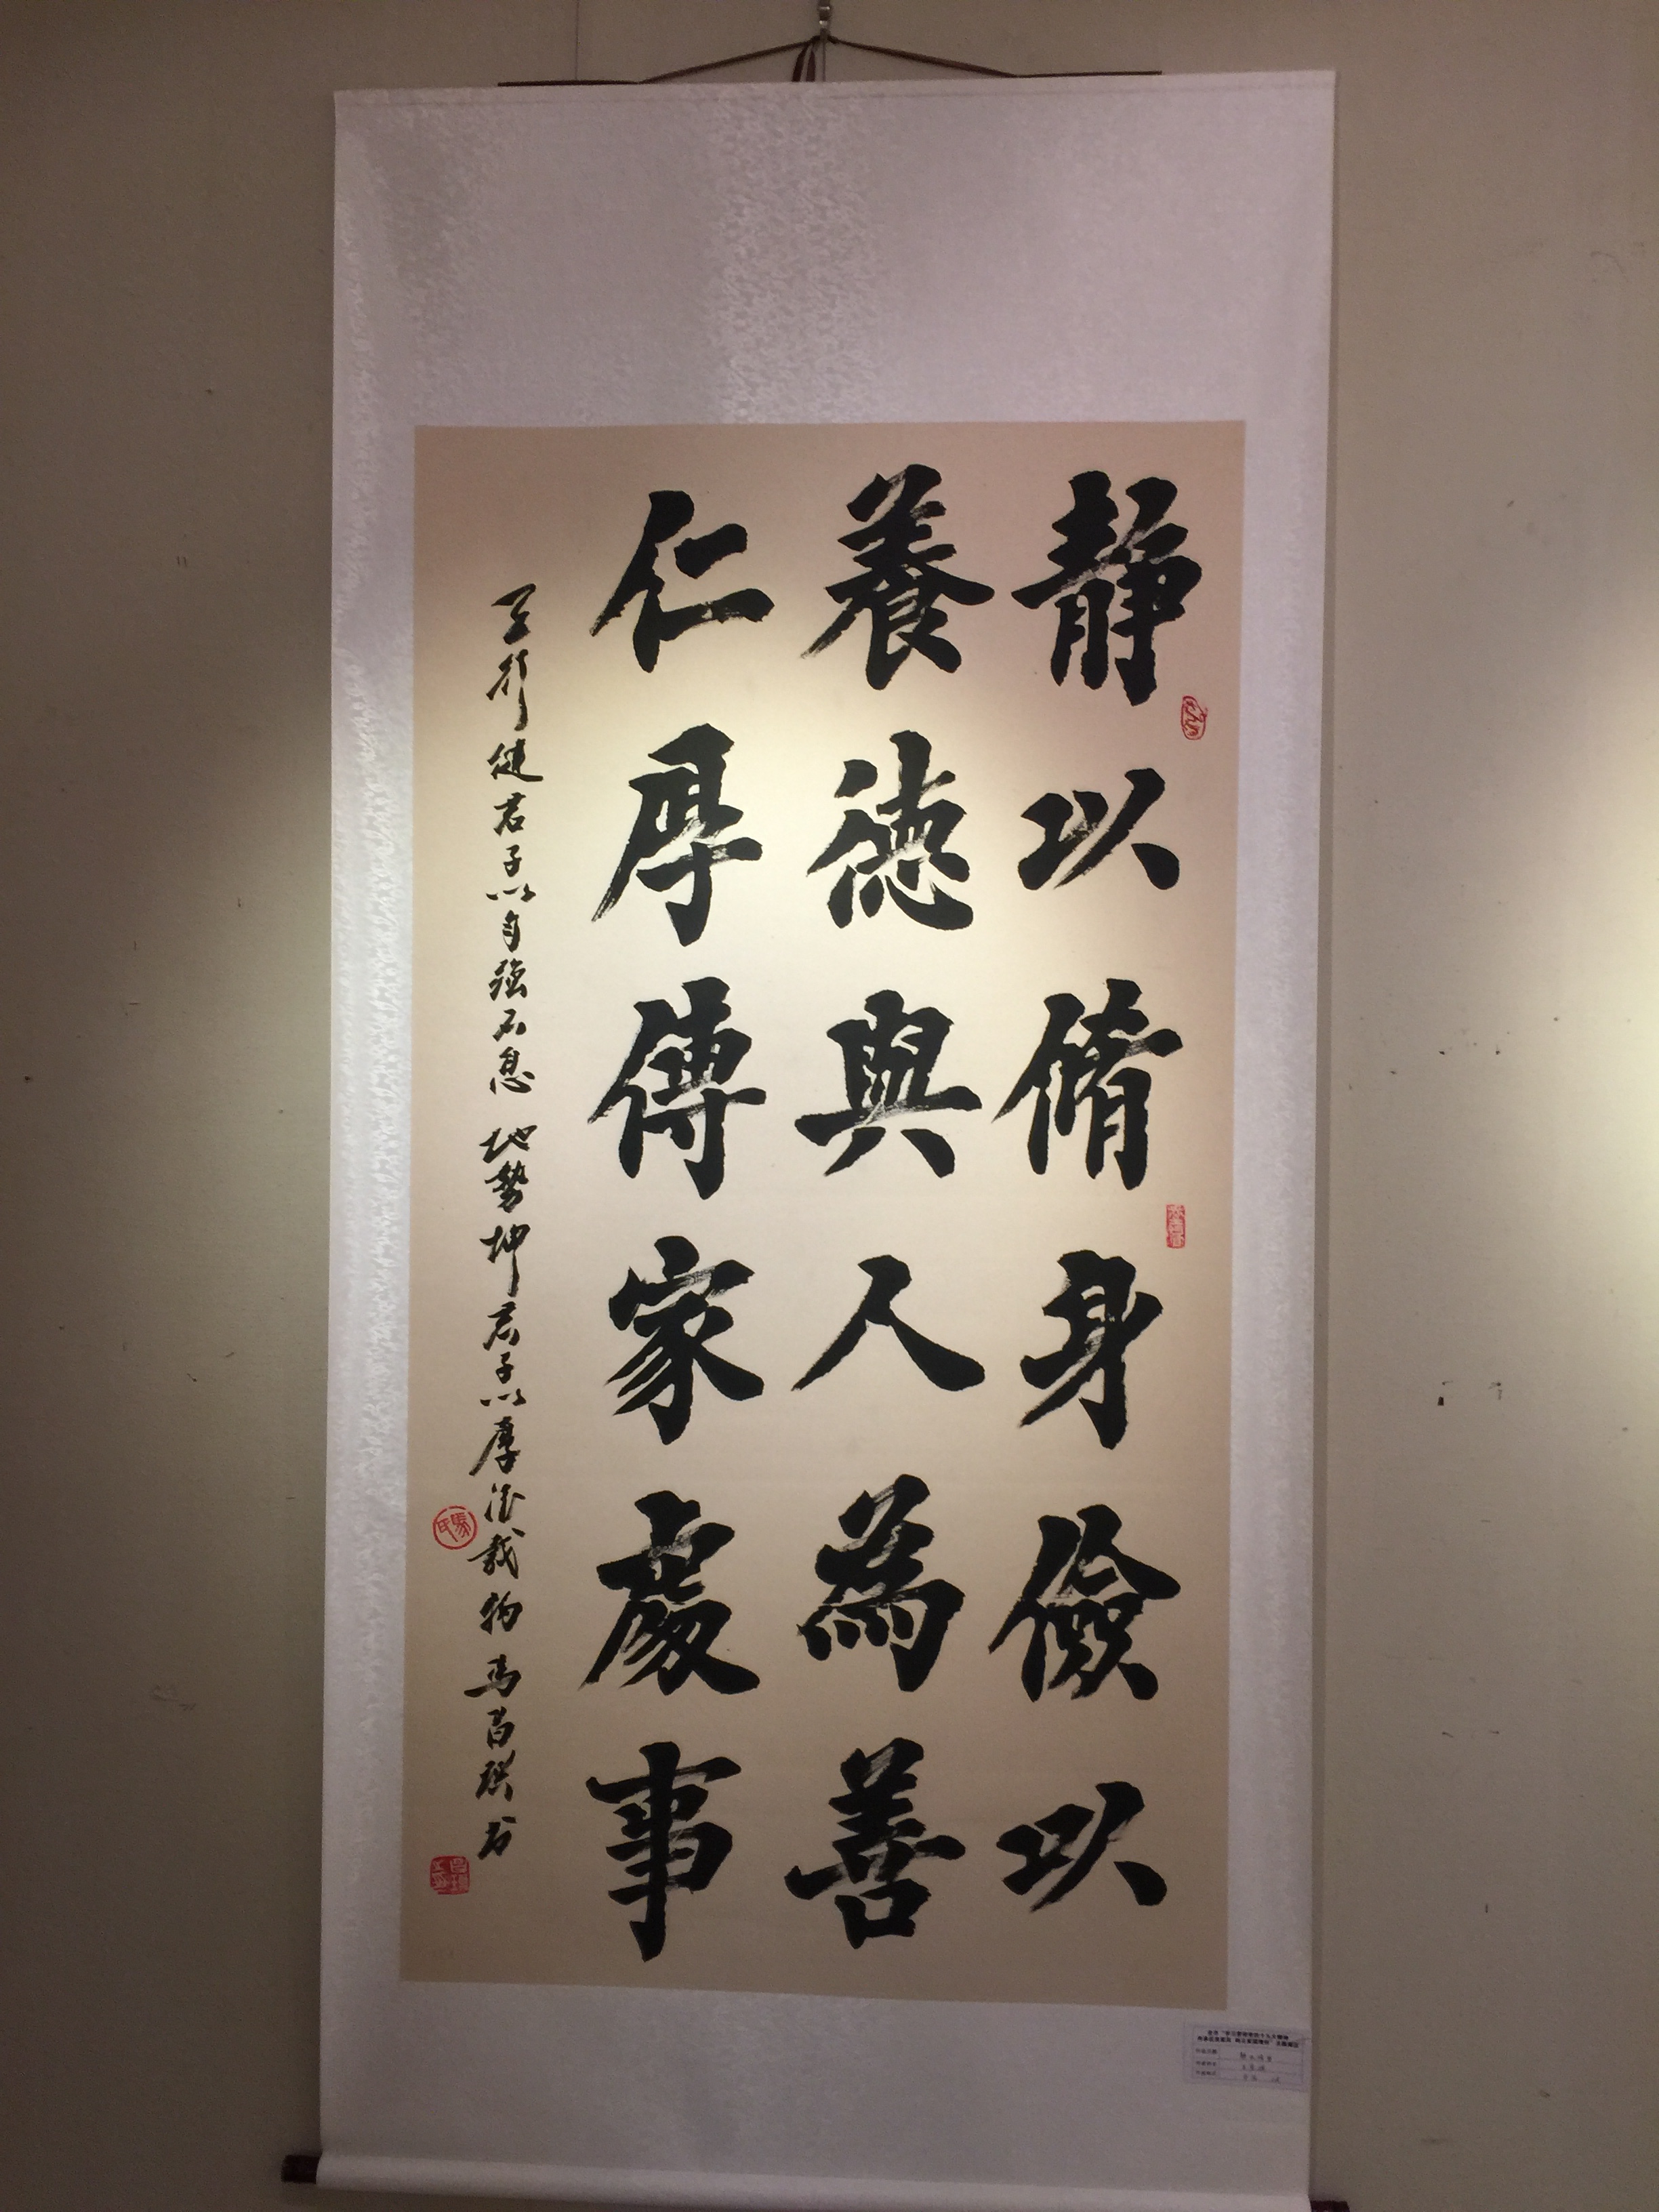 静以脩身儉以
養德與人為善
仁厚傳家處事
天行健君子以自強不息 地勢坤君子以厚德載物 馬昌琪书